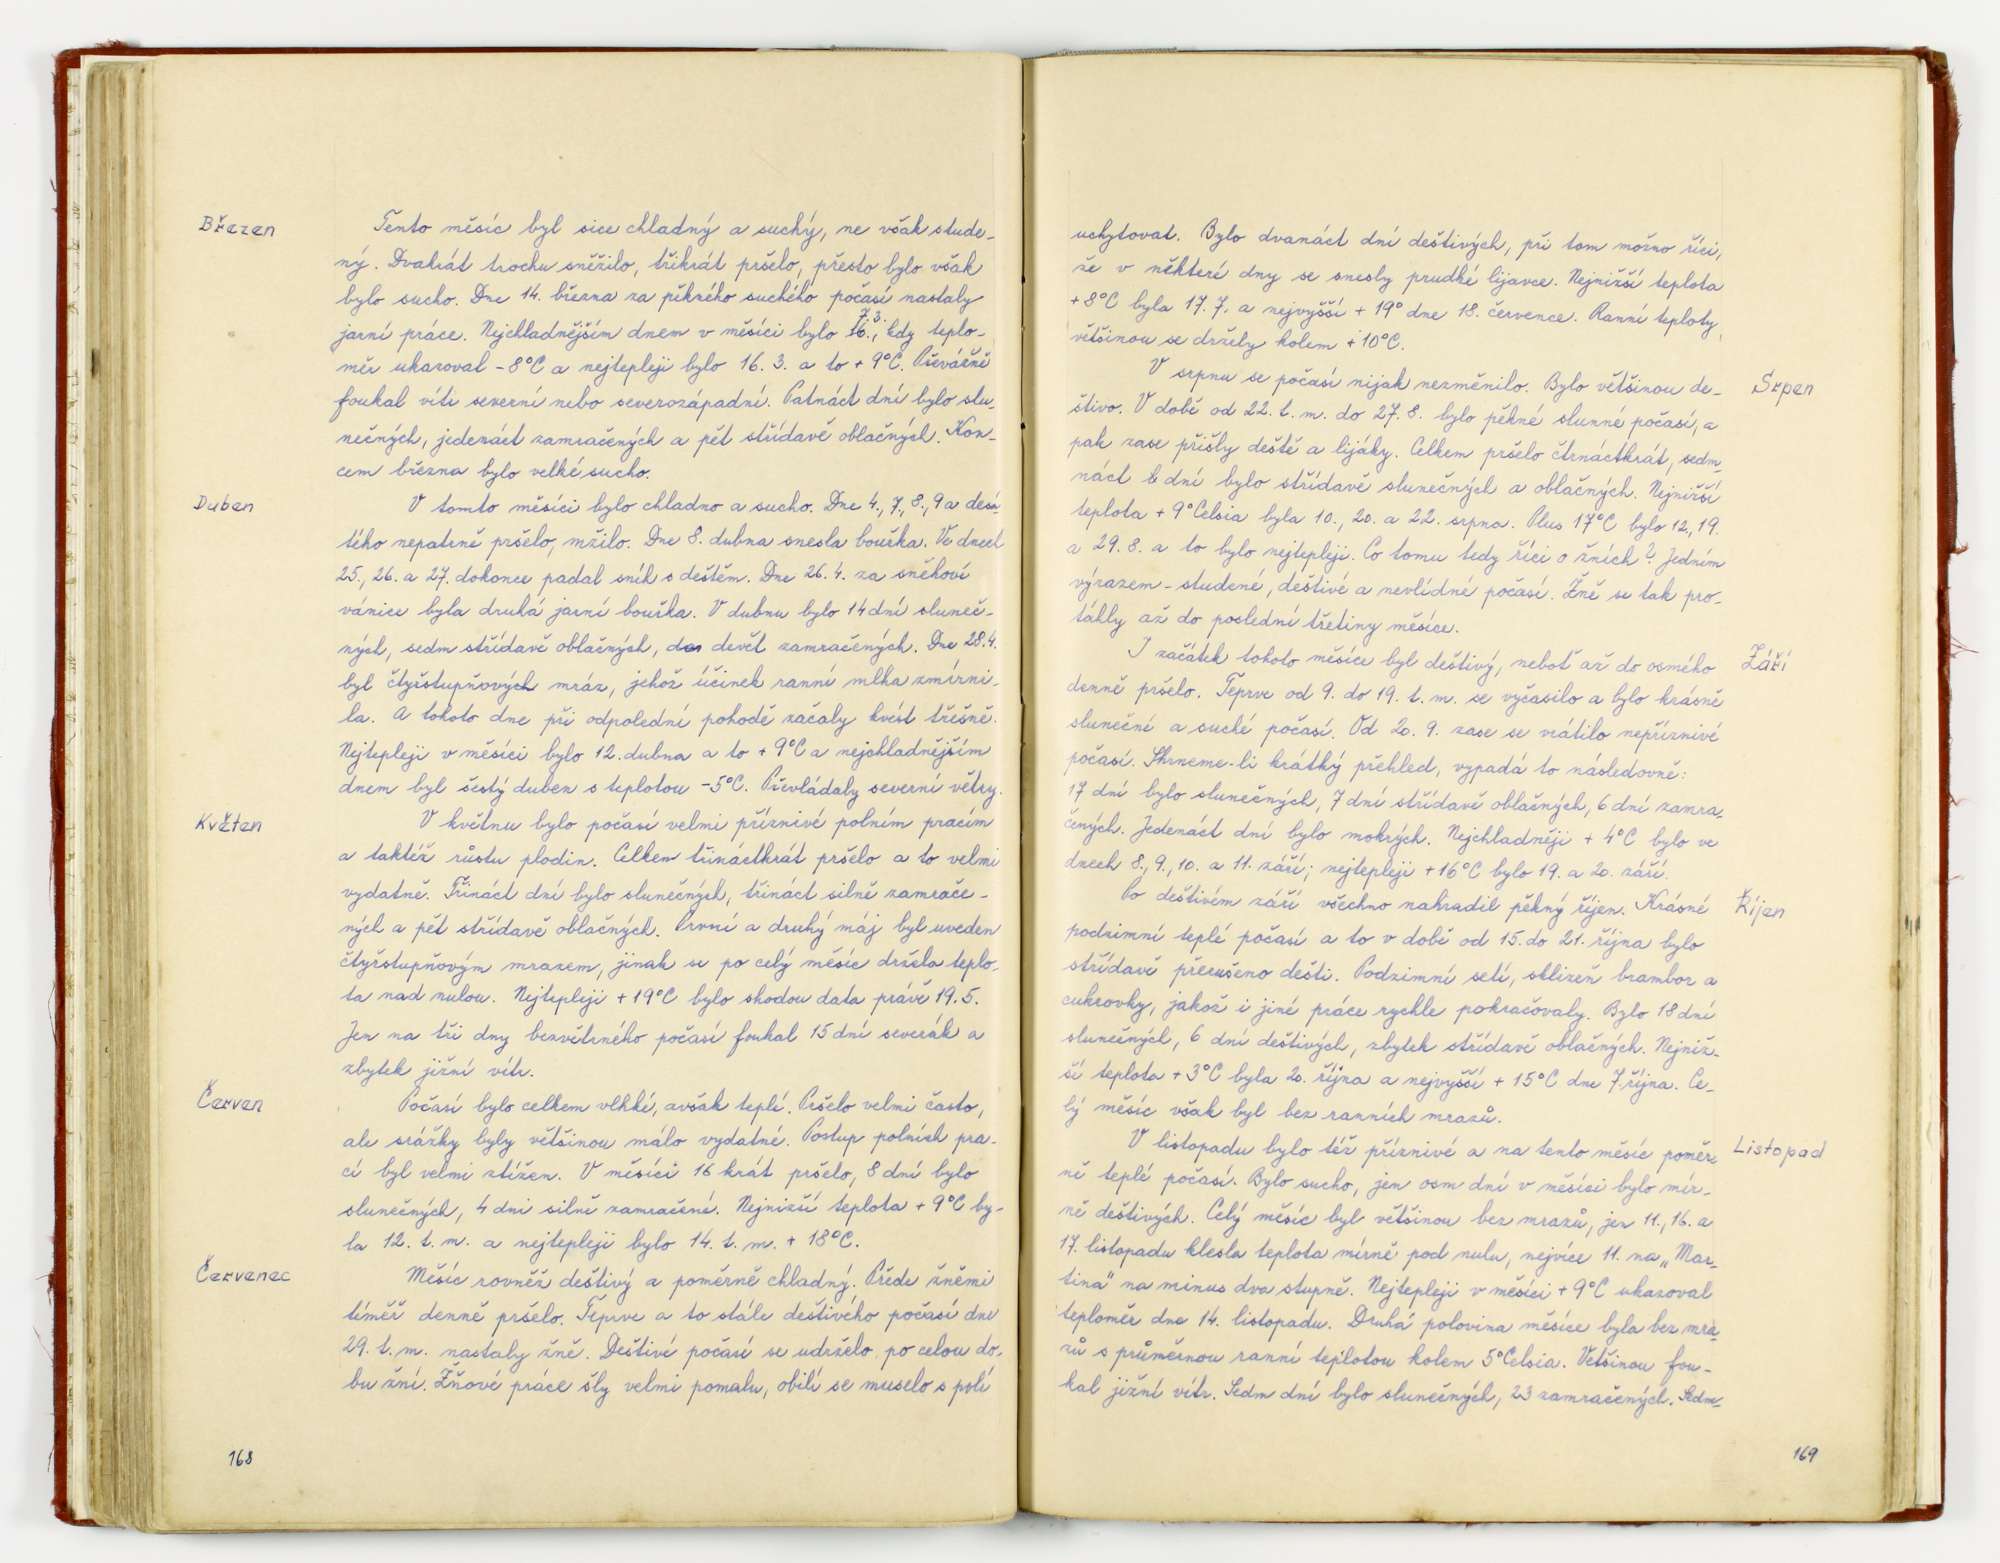 Březen
Tento měsíc byl sice chladný a suchý, ne však stude-
ný. Dvakrát trochu sněžilo, třikrát pršelo, přesto bylo však
bylo sucho. Dne 14. března za pěkného suchého počasí nastaly
jarní práce. Nejchladnějším dnem v měsíci bylo 7.3., kdy teplo-
měr ukazoval -8°C a nejtepleji bylo 16. 3. a to + 9°C. Převážně
foukal vítr severní nebo severozápadní. Patnáct dní bylo slu-
nečných, jedenáct zamračených a pět střídavě oblačných. Kon-
cem března bylo velké sucho.
Duben
V tomto měsíci bylo chladno a sucho. Dne 4., 7., 8., 9 a desá-
tého nepatrně pršelo, mžilo. Dne 8. dubna snesla bouřka. Ve dnech
25., 26. a 27. dokonce padal sníh s deštěm. Dne 26. 4. za sněhoví
vánice byla druhá jarní bouřka. V dubnu bylo 14 dní sluneč-
ných, sedm střídavě oblačných, devět zamračených. Dne 28.4.
byl čtyřstupňových mráz, jehož účinek ranní mlha zmírni-
la. A tohoto dne při odpolední pohodě začaly kvést třešně.
Nejtepleji v měsíci bylo 12. dubna a to + 9°C a nejchladnějším
dnem byl šestý duben s teplotou -5°C. Převládaly severní větry.
Květen
V květnu bylo počasí velmi příznivé polním pracím
a taktéž růstu plodin. Celkem třináctkrát pršelo a to velmi
vydatně. Třináct dní bylo slunečných, třináct silně zamrače-
ných a pět střídavě oblačných. První a druhý máj byl uveden
čtyřstupňovým mrazem, jinak se po celý měsíc držela teplo-
ta nad nulou. Nejtepleji +19°C bylo shodou data právě 19. 5.
Jen na tři dny bezvětrného počasí foukal 15 dní severák a
zbytek jižní vítr.
Červen
Počasí bylo celkem vlhké, avšak teplé. Pršelo velmi často,
ale srážky byly většinou málo vydatné. Postup polních pra-
cí byl velmi ztížen. V měsíci 16 krát pršelo, 8 dní bylo
slunečných, 4 dni silně zamračené. Nejnižší teplota + 9°C by-
la 12. t. m. a nejtepleji bylo 14. t. m. + 18°C.
Červenec
Měsíc rovněž deštivý a poměrně chladný. Přede žněmi
téměř denně pršelo. Teprve a to stále deštivého počasí dne
29. t. m. nastaly žně. Deštivé počasí se udrželo po celou do-
bu žní. Žňové práce šly velmi pomalu, obilí se muselo s polí
168
uchytovat. Bylo dvanáct dní deštivých, při tom možno říci,
že v některé dny se snesly prudké lijavce. Nejnižší teplota
+8°C byla 17. 7. a nejvyšší + 19° dne 18. července. Ranní teploty
většinou se držely kolem +10°C.
Srpen
V srpnu se počasí nijak nezměnilo. Bylo většinou de-
štivo. V době od 22. t. m. do 27. 8. bylo pěkné slunné počasí, a
pak zase přišly deště a lijáky. Celkem pršelo čtrnáctkrát, sedm-
náct dní bylo střídavě slunečných a oblačných. Nejnižší
teplota + 9°Celsia byla 10., 20. a 22. srpna. Plus 17°C bylo 12, 19.
a 29. 8. a to bylo nejtepleji. Co tomu tedy říci o žních? Jedním
výrazem - studené, deštivé a nevlídné počasí. Žně se tak pro-
táhly až do poslední třetiny měsíce.
Září
I začátek tohoto měsíce byl deštivý, neboť až do osmého
denně pršelo. Teprve od 9. do 19. t. m. se vyčasilo a bylo krásně
slunečné a suché počasí. Od 20. 9. zase se vrátilo nepříznivé
počasí. Shrneme-li krátký přehled, vypadá to následovně:
17 dní bylo slunečných, 7 dní střídavě oblačných, 6 dní zamra-
čených. Jedenáct dní bylo mokrých. Nejchladněji + 4°C bylo ve
dnech 8., 9., 10. a 11. září; nejtepleji +16°C bylo 19. a 20. září.
Říjen
Po deštivém září všechno nahradil pěkný říjen. Krásné
podzimní teplé počasí a to v době od 15. do 21. října bylo
střídavě přerušeno dešti. Podzimní setí, sklizeň brambor a
cukrovky, jakož i jiné práce rychle pokračovaly. Bylo 18 dní
slunečných, 6 dní deštivých, zbytek střídavě oblačných. Nejniž-
ší teplota +3°C byla 20. října a nejvyšší + 15°C dne 7. října. Ce-
lý měsíc však byl bez ranních mrazů.
Listopad
V listopadu bylo též příznivé a na tento měsíc poměr-
ně teplé počasí. Bylo sucho, jen osm dní v měsíci bylo mír-
ně deštivých. Celý měsíc byl většinou bez mrazů, jen 11., 16. a
17. listopadu klesla teplota mírně pod nulu, nejvíce 11. na „Mar-
tina" na minus dva stupně. Nejtepleji v měsíci + 9°C ukazoval
teploměr dne 14. listopadu. Druhá polovina měsíce byla bez mra-
zů s průměrnou ranní teplotou kolem 5°Celsia. Většinou fou-
kal jižní vítr. Sedm dní bylo slunečných, 23 zamračených. Sedm-
169